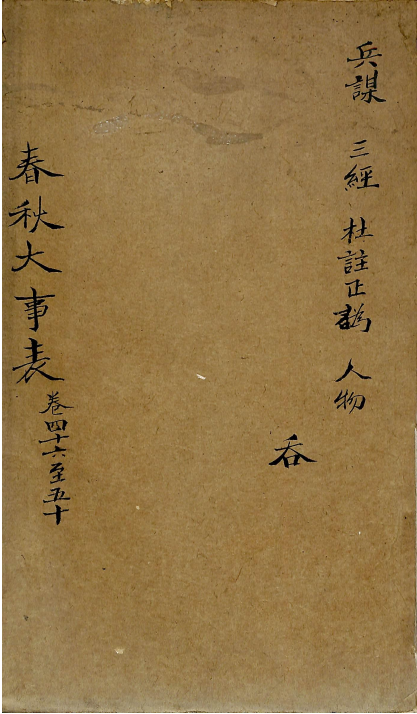 兵謀 三經 杜註正譌 人物
吞
春秋大事表
卷四十六至五十